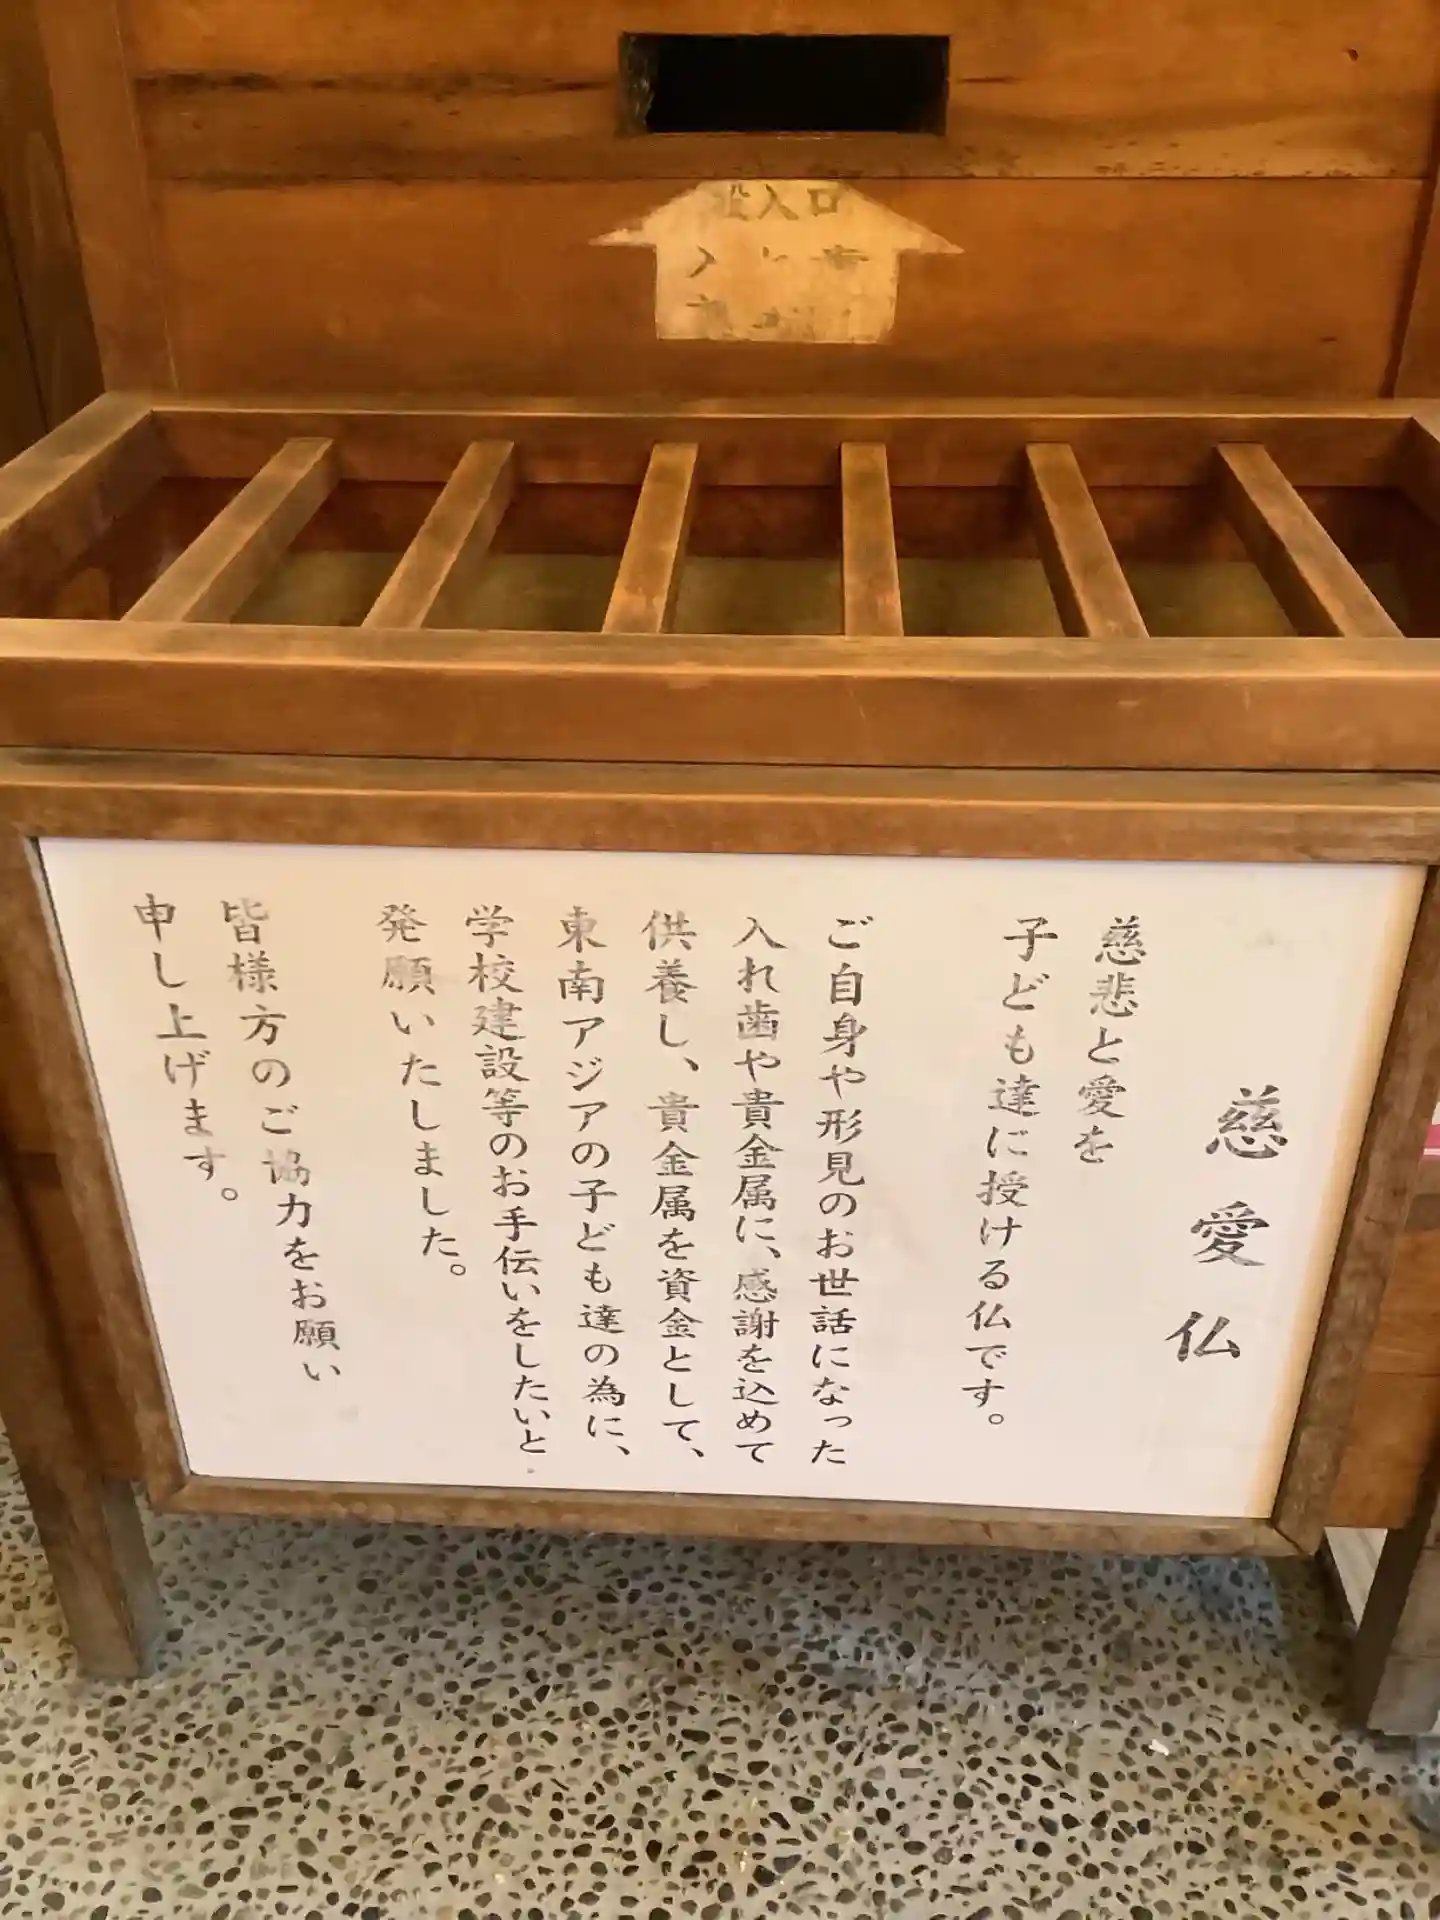 投入口
慈愛仏
慈悲と愛を
子ども達に授ける仏です。
ご自身や形見のお世話になった
入れ歯や貴金属に、感謝を込めて
供養し、貴金属を資金として、
東南アジアの子ども達の為に、
学校建設等のお手伝いをしたいと
発願いたしました。
皆様方のご協力をお願い
申し上げます。